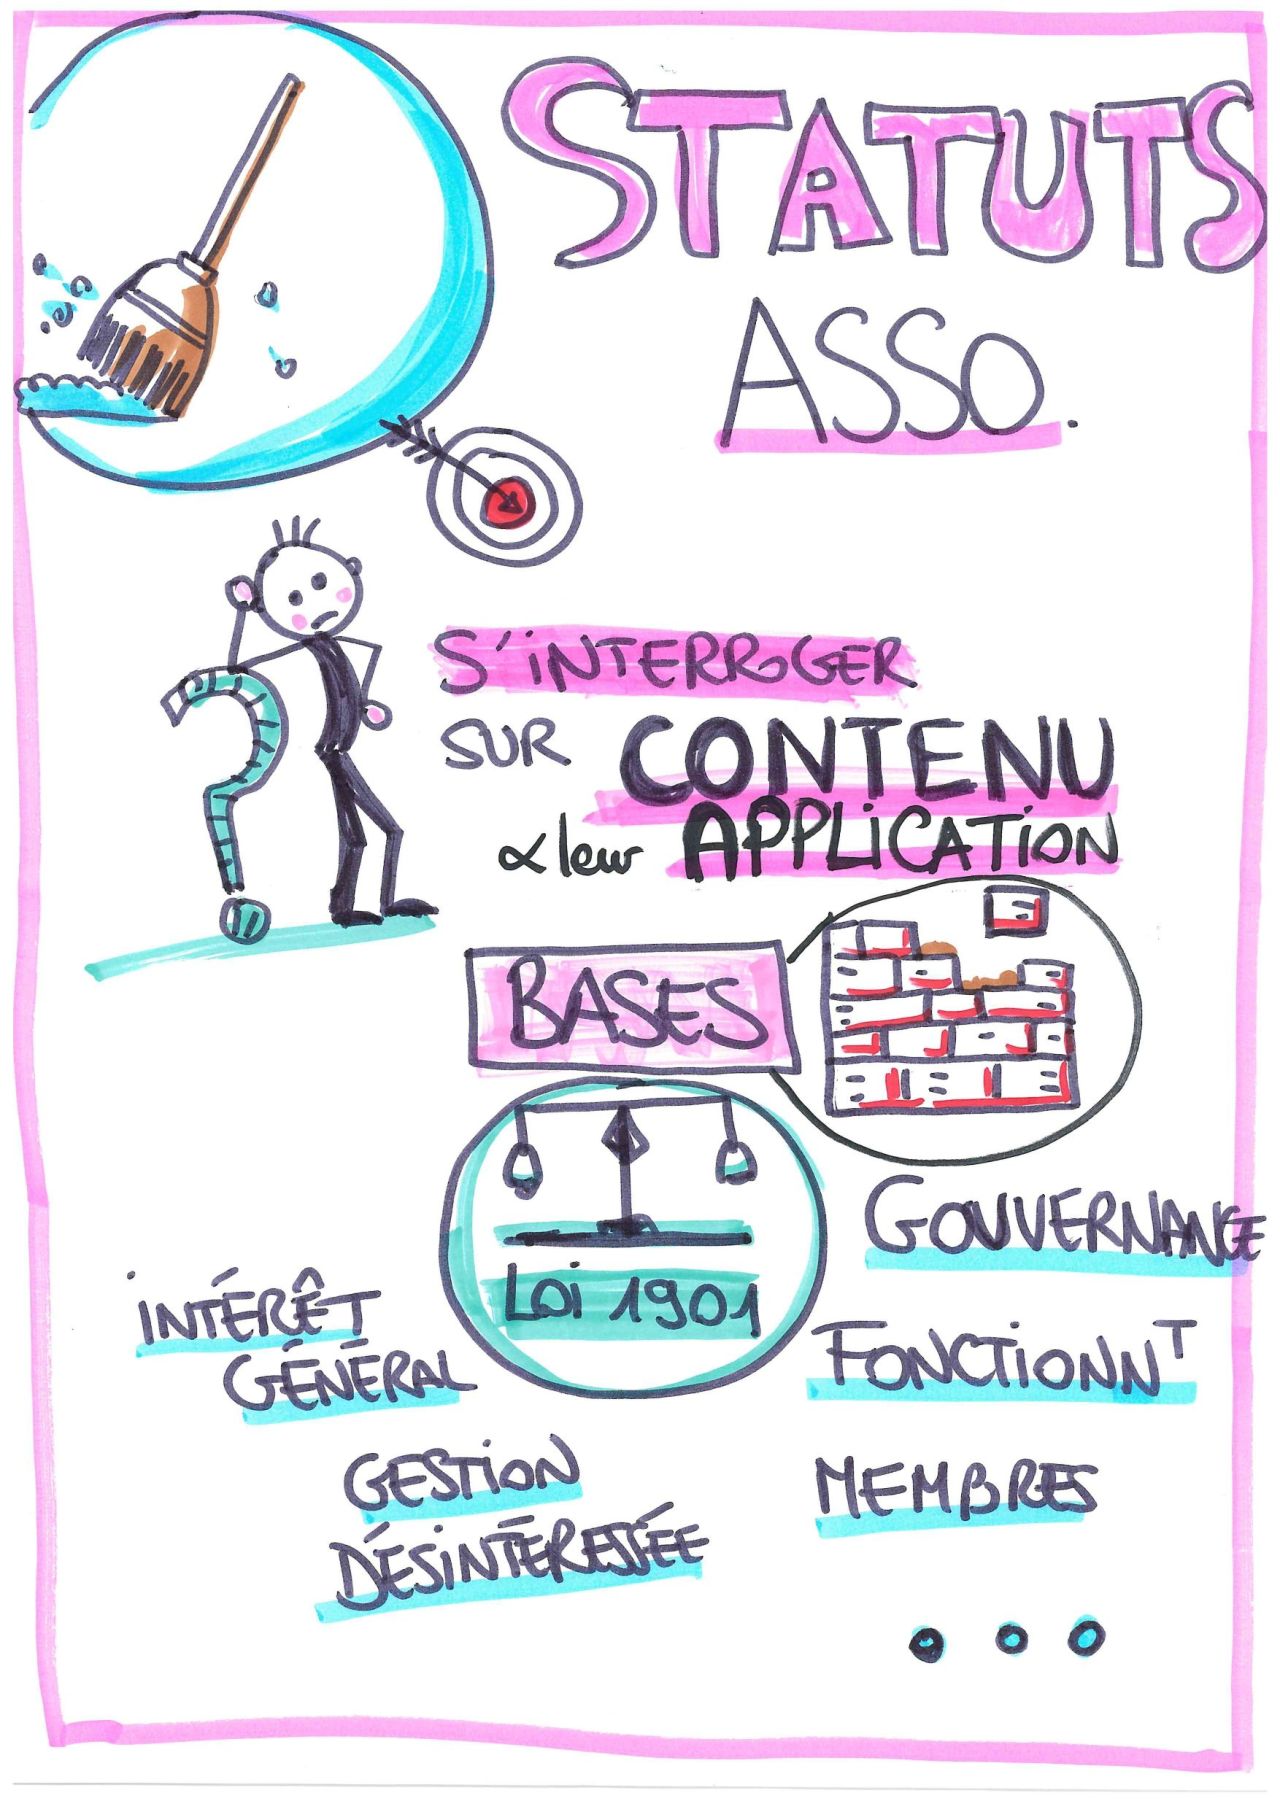 STATUTS
ASSO.
S'INTERROGER
SUR CONTENU
& leur APPLICATION
BASES
LOI 1901
GOUVERNANCE
INTÉRÊT
GÉNÉRAL
FONCTIONNT
GESTION
DÉSINTÉRESSÉE
MEMBRES
...